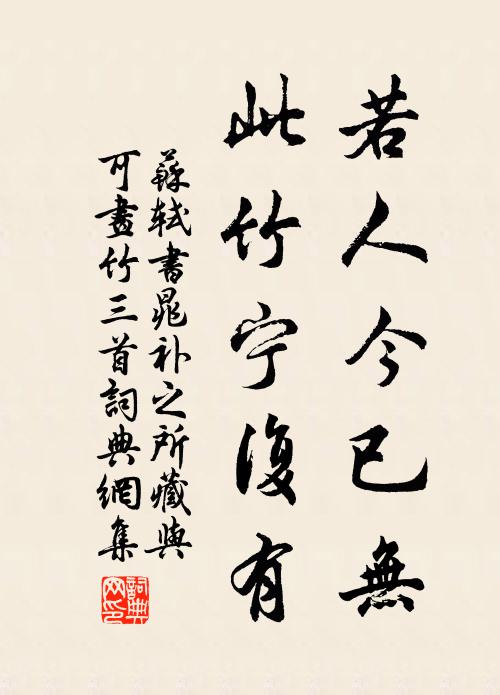 若人今已無
此竹宁復有
蘇軾書晁补之所藏與
可畫竹三首詞典網集
詞典
網印